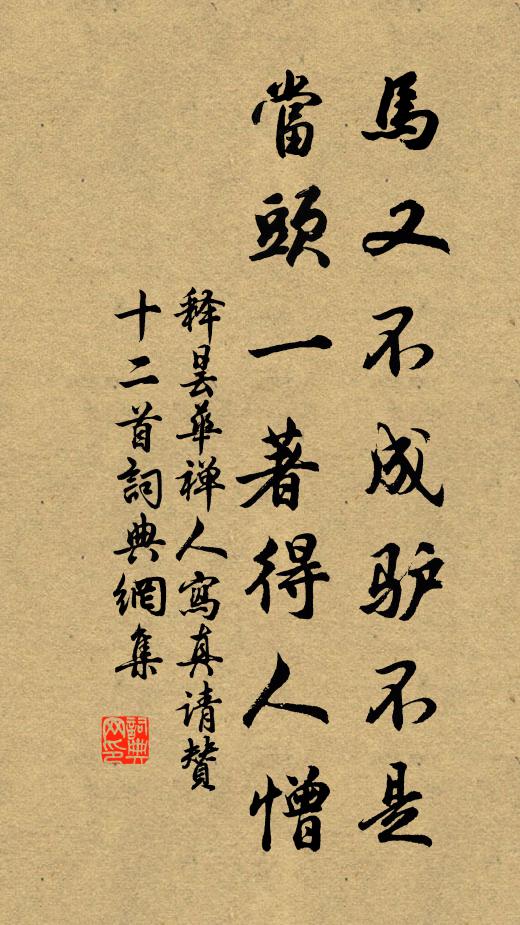 馬又不成驴不是
當頭一著得人憎
释昙華禅人寫真请贊
十二首詞典網集
詞典网印